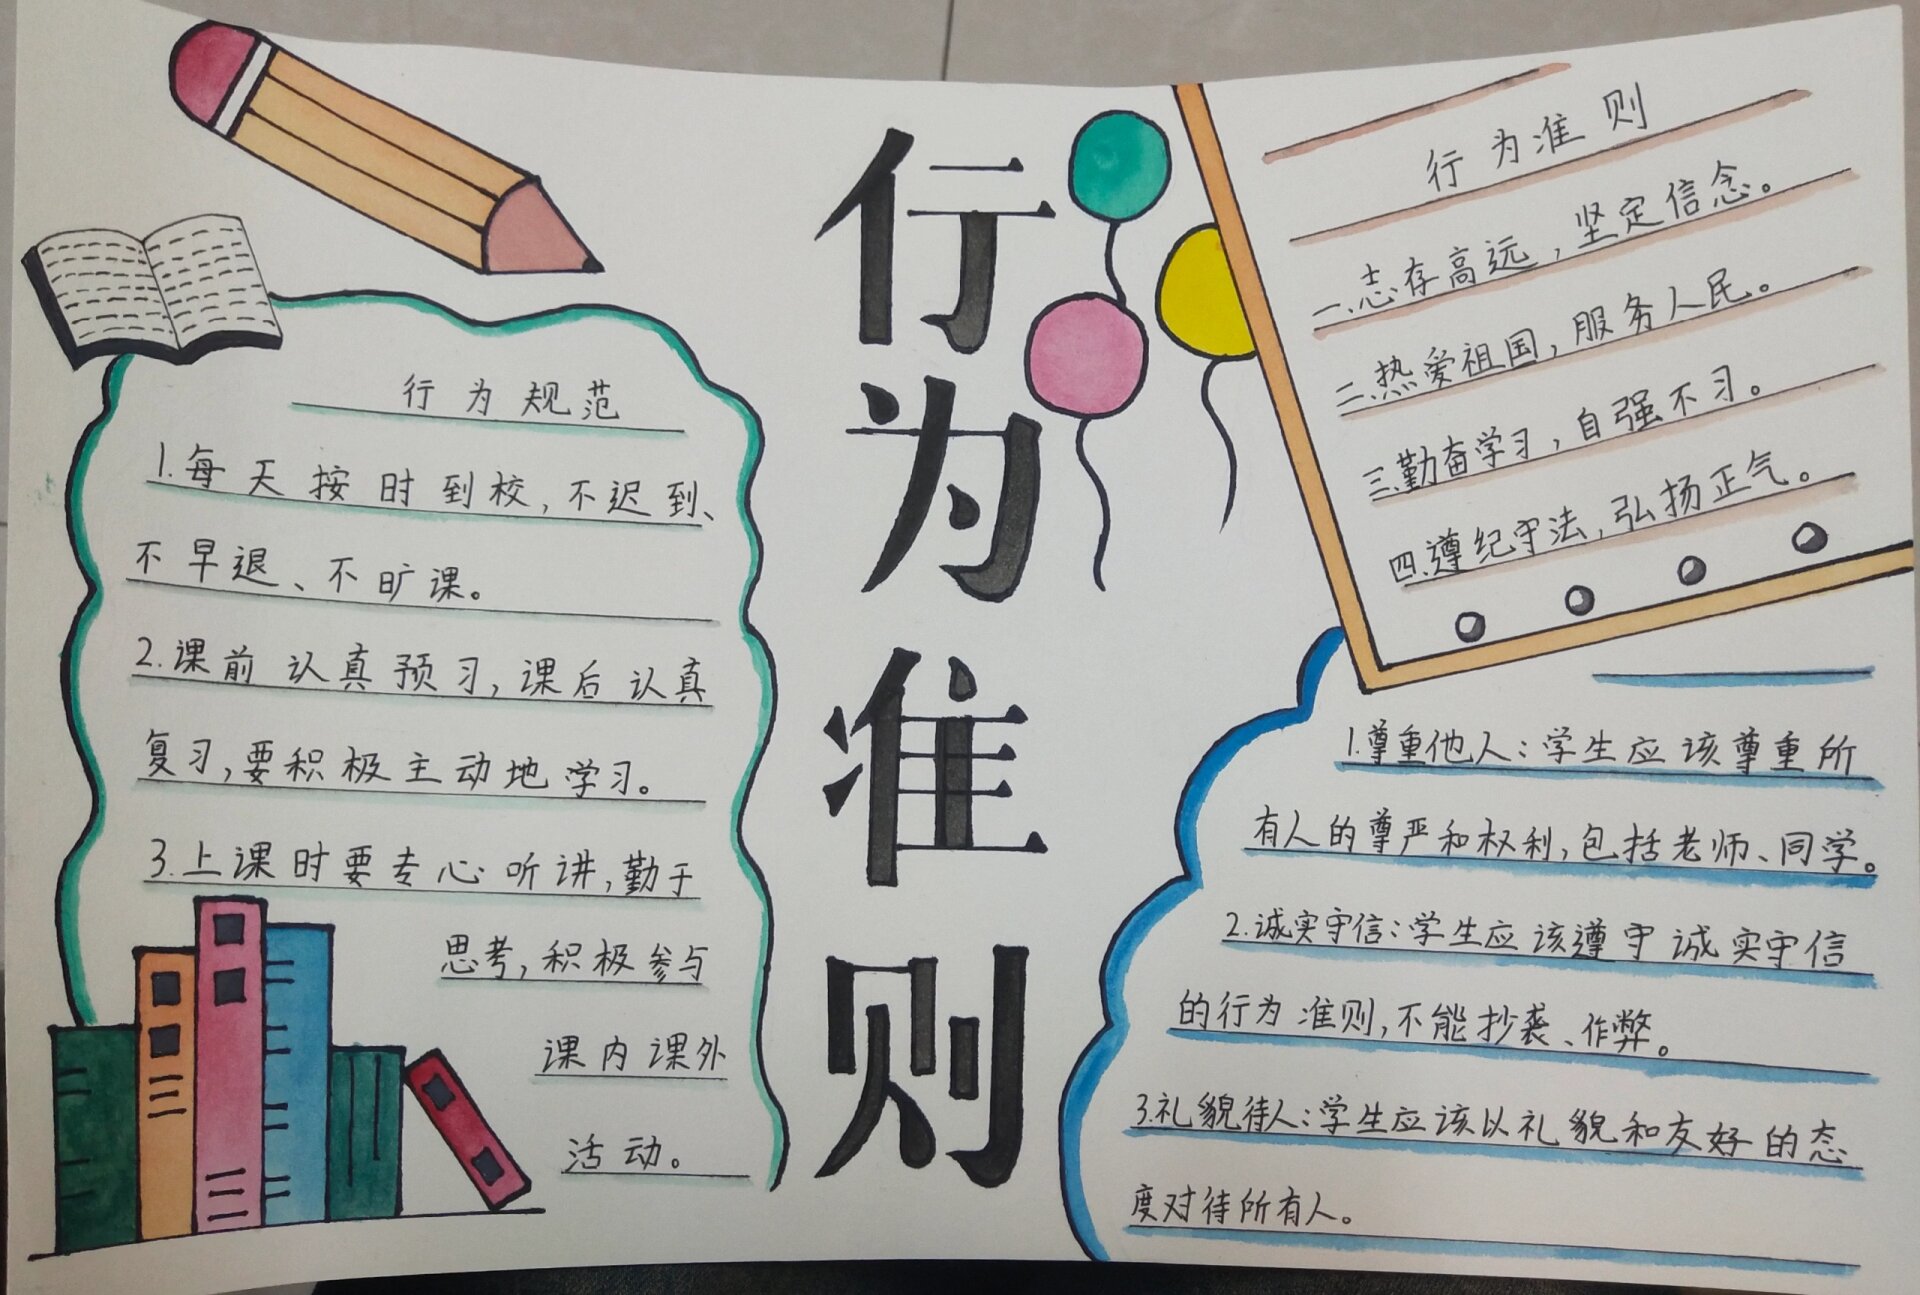 行为规范
1.每天按时到校,不迟到、
不早退、不旷课。
2.课前认真预习,课后认真
复习,要积极主动地学习。
3.上课时要专心听讲,勤于
思考,积极参与
课内课外
活动。
行为准则
行为准则
一.志存高远,坚定信念。
二.热爱祖国,服务人民。
三.勤奋学习,自强不习。
四.遵纪守法,弘扬正气。
1.尊重他人:学生应该尊重所
有人的尊严和权利,包括老师、同学。
2.诚实守信:学生应该遵守诚实守信
的行为准则,不能抄袭、作弊。
3.礼貌待人:学生应该以礼貌和友好的态
度对待所有人。